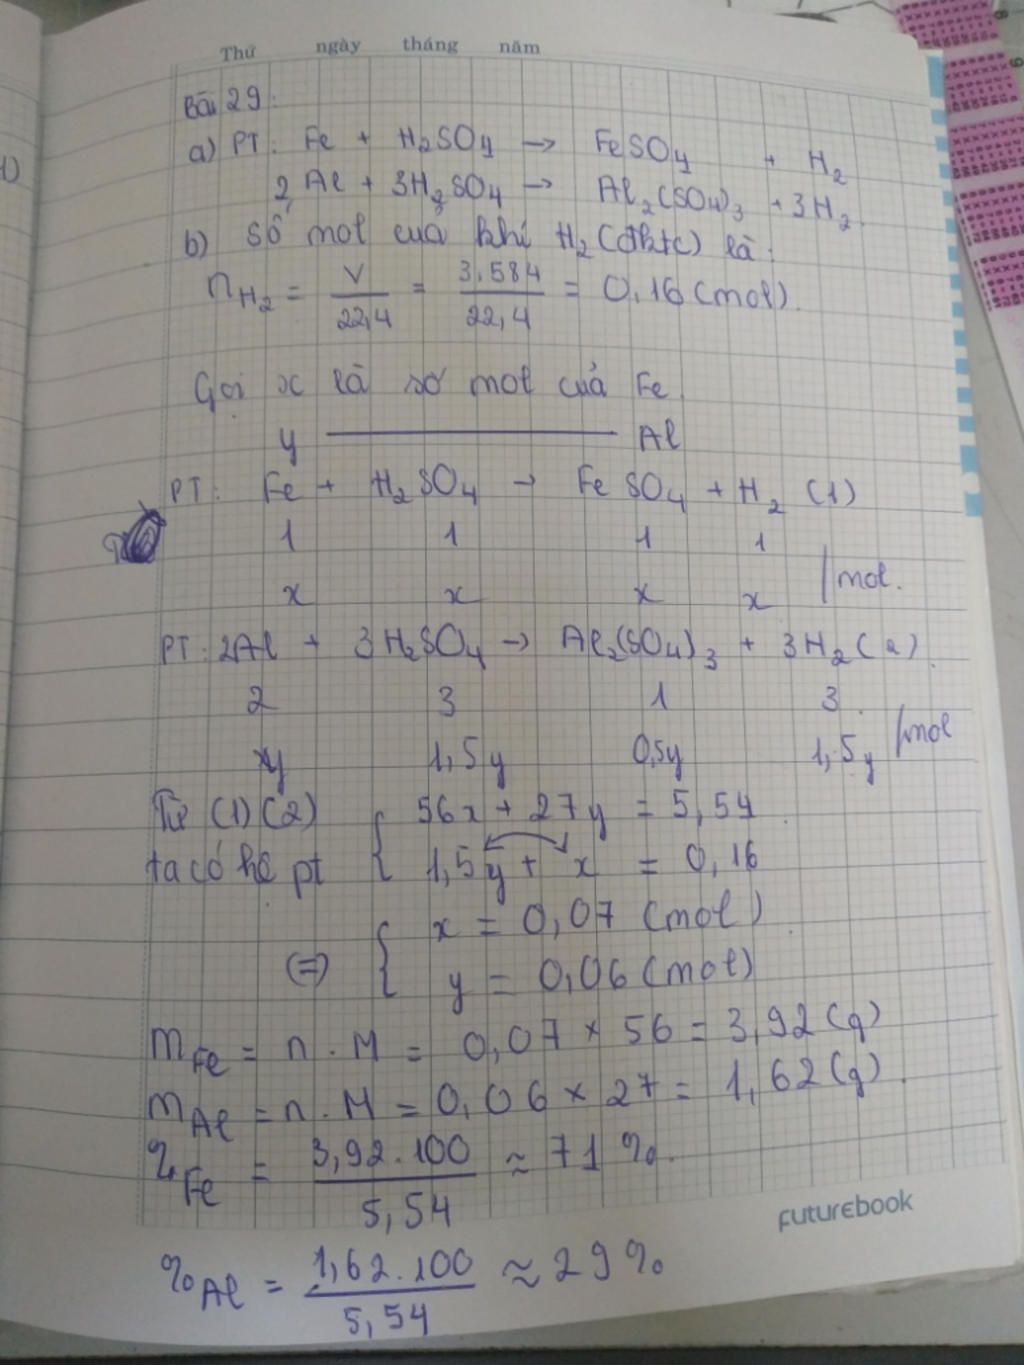 Thứ ngày tháng năm
Bài 29:
a) PT: Fe + H₂SO₄ → FeSO₄ + H₂
2Al + 3H₂SO₄ → Al₂(SO₄)₃ + 3H₂
b) Số mol của khí H₂ (đktc) là:
nH₂ = V/22,4 = 3,584/22,4 = 0,16 (mol)
Gọi x là số mol của Fe
y ———— Al
PT: Fe + H₂SO₄ → FeSO₄ + H₂ (1)
1 1 1 1
x x x x /mol.
PT: 2Al + 3H₂SO₄ → Al₂(SO₄)₃ + 3H₂ (2)
2 3 1 3
y 1,5y 0,5y 1,5y /mol
Từ (1) (2) { 56x + 27y = 5,54
ta có hệ pt { 1,5y + x = 0,16
{ x = 0,07 (mol)
(=) { y = 0,06 (mol)
mFe = n . M = 0,07 × 56 = 3,92 (g)
mAl = n . M = 0,06 × 27 = 1,62 (g)
%Fe = 3,92.100/5,54 ≈ 71 %.
futurebook
%Al = 1,62.100/5,54 ≈ 29 %